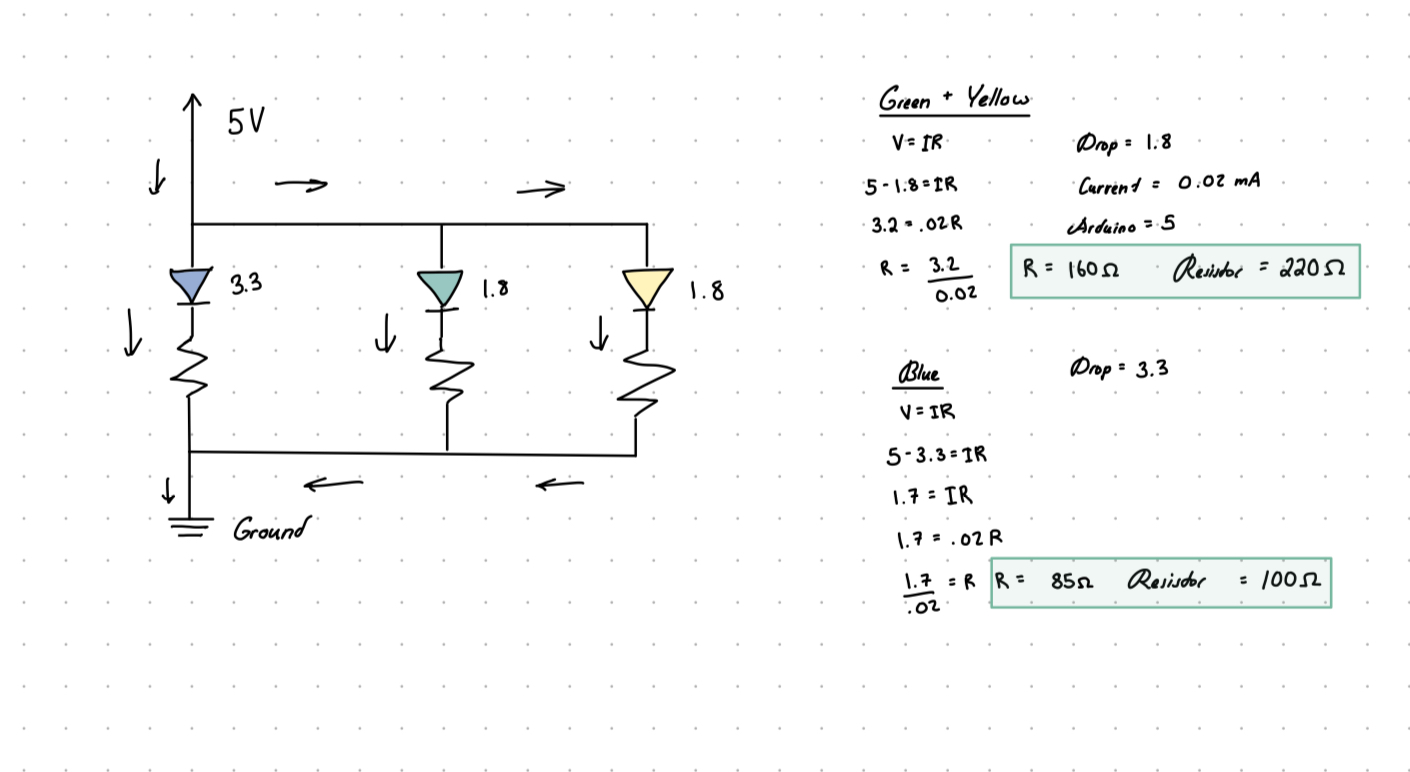 5V
3.3
1.8
1.8
Ground
Green + Yellow
V = IR
5 - 1.8 = IR
3.2 = .02R
R = 3.2
0.02
Drop = 1.8
Current = 0.02 mA
Arduino = 5
R = 160Ω Resistor = 220Ω
Blue
Drop = 3.3
V = IR
5 - 3.3 = IR
1.7 = IR
1.7 = .02R
1.7 = R
.02
R = 85Ω Resistor = 100Ω